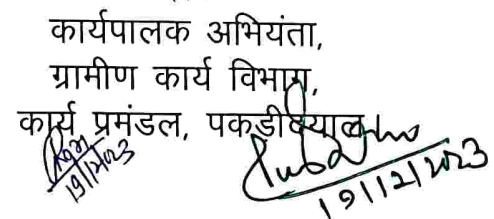 कार्यपालक अभियंता,
ग्रामीण कार्य विभाग,
कार्य प्रमंडल, पकड़ीदयाल
19/12/2023
19/12/2023